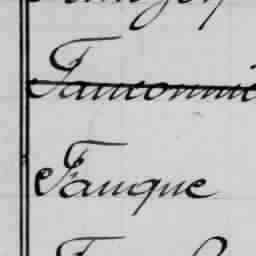 Fauconnie
Fauque